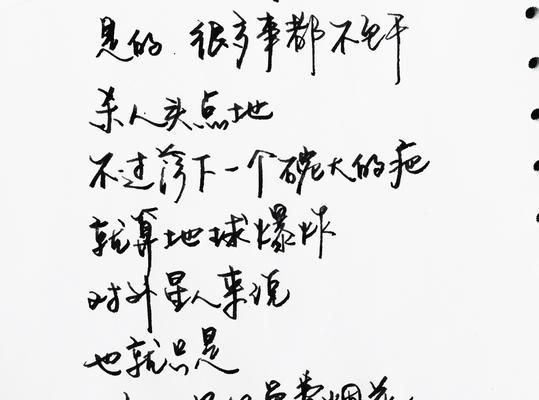 是的 很多事都不完干
杀人头点地
不过落下一个碗大的疤
就算地球爆炸
对外星人来说
也就只是